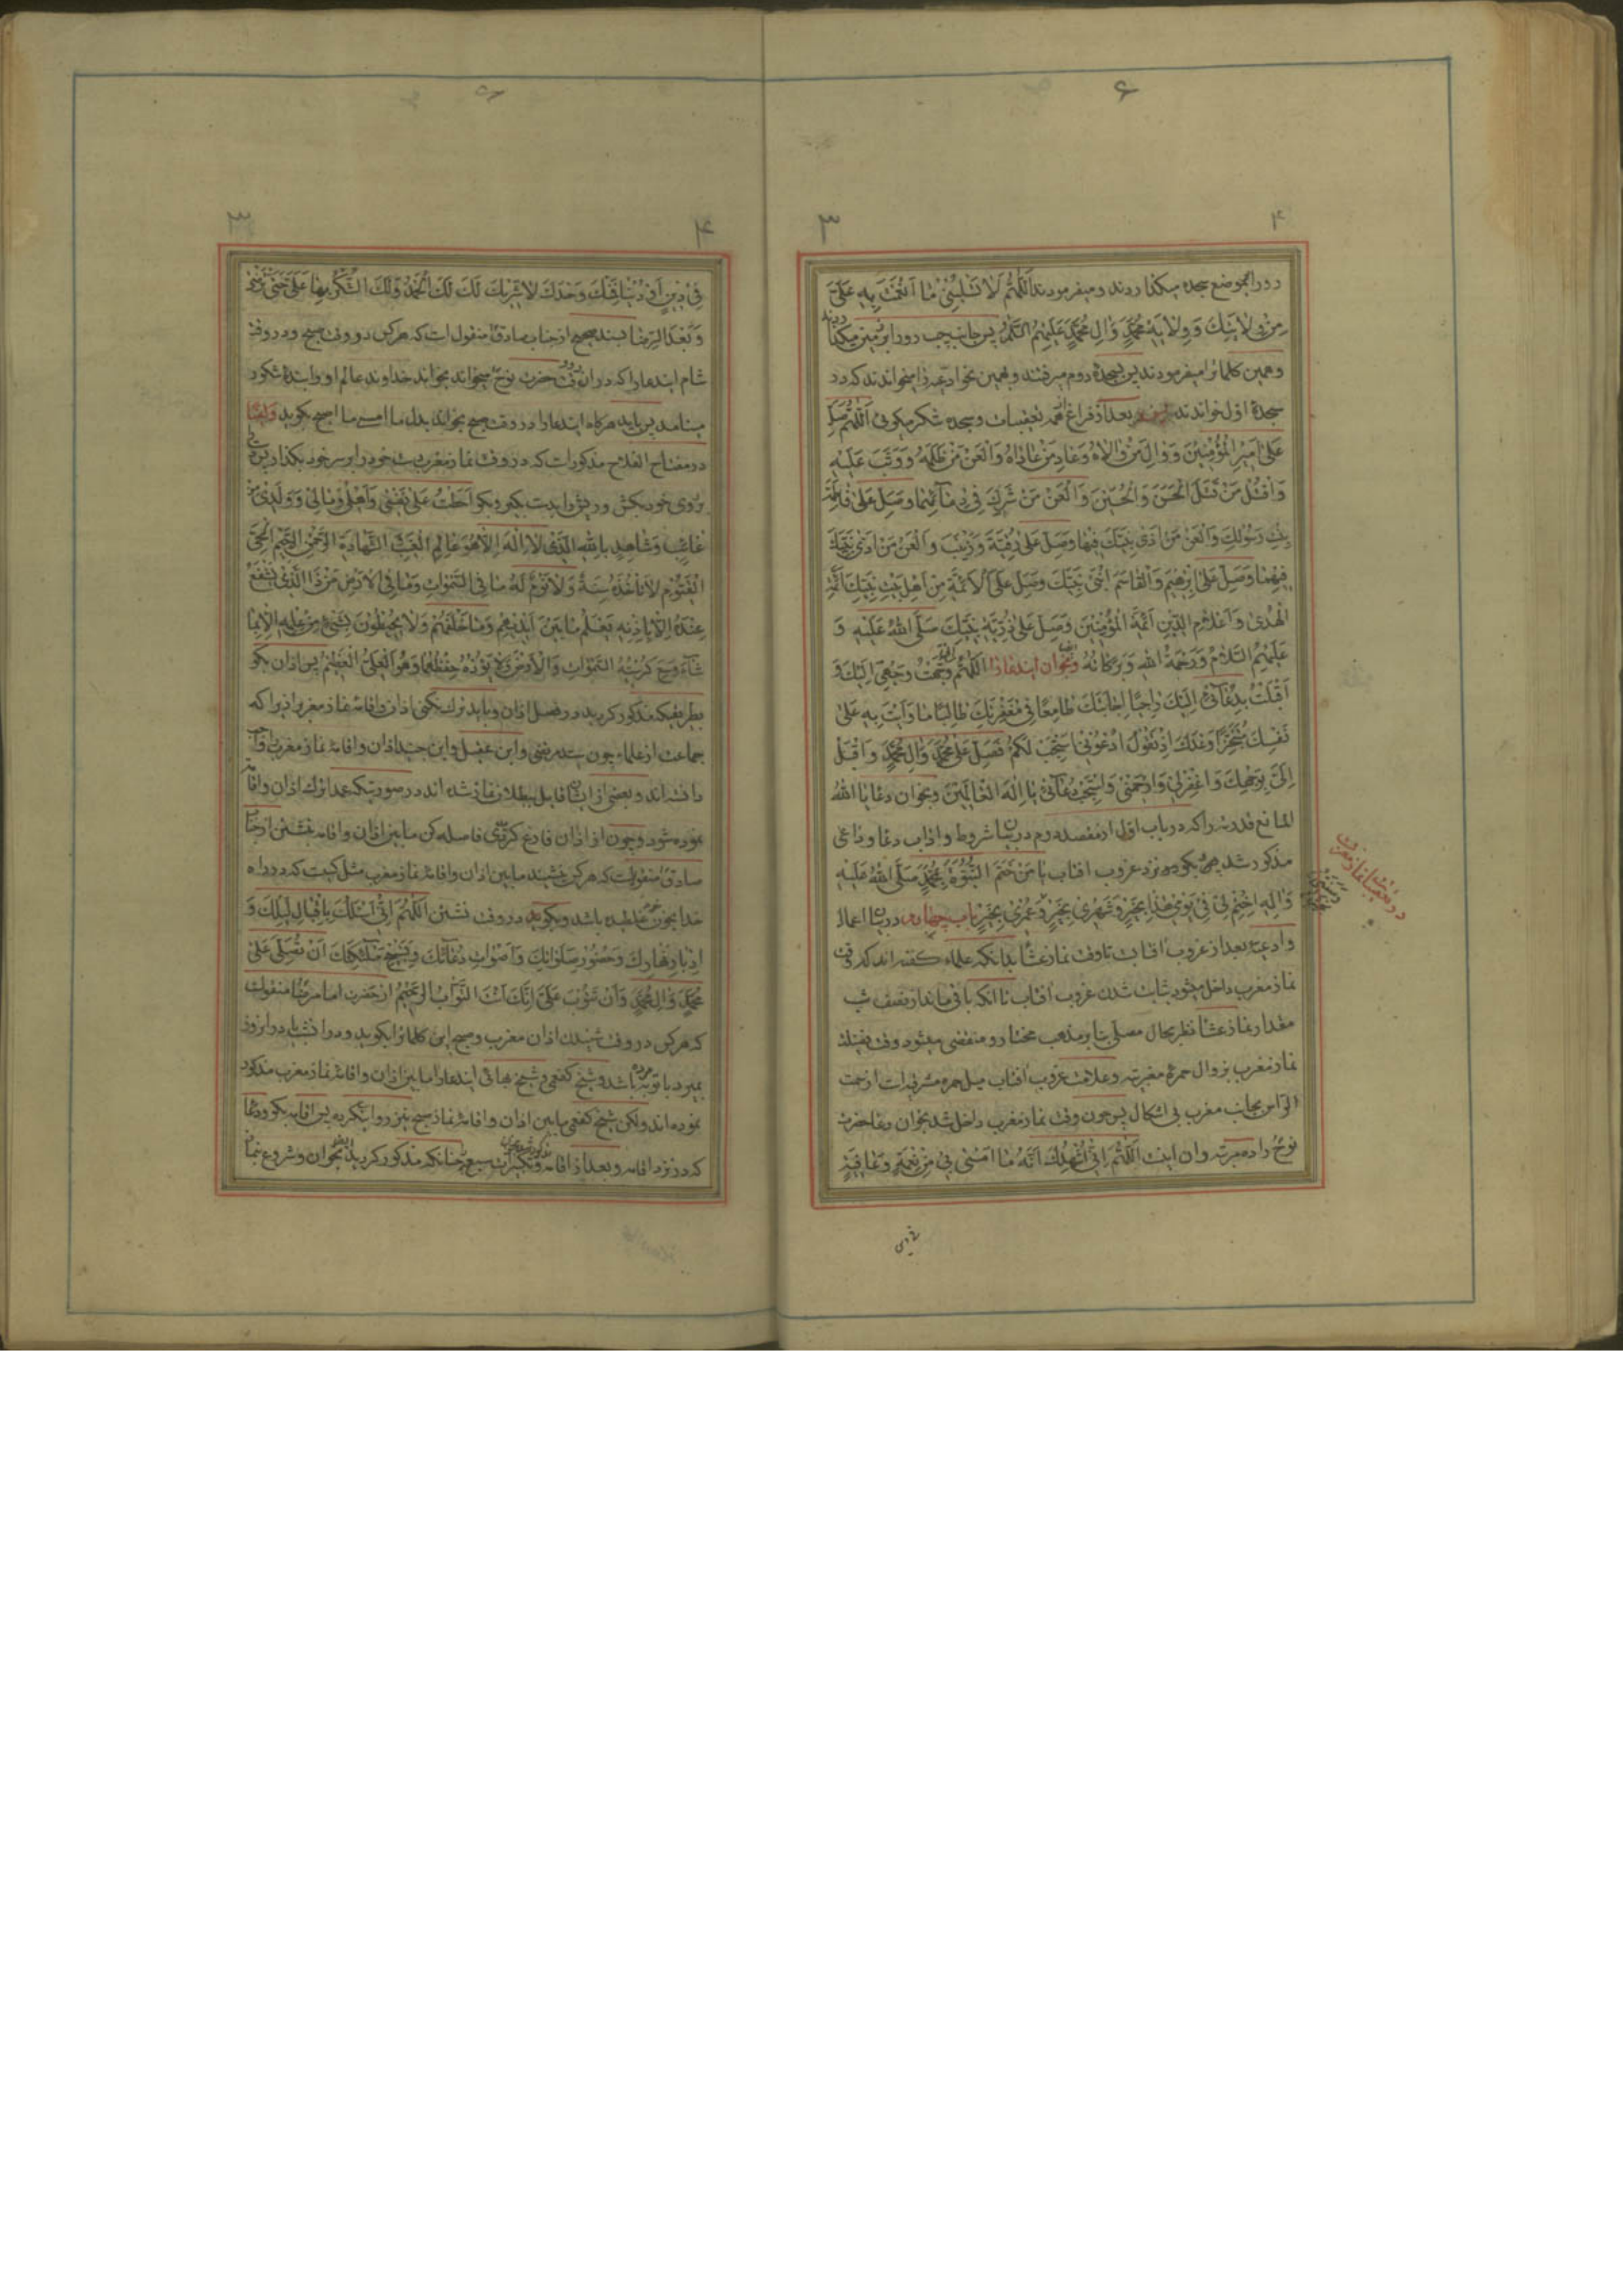 دو را بموضع سجده میکذاردند و میفرمودند اَللّٰهُمَّ لَا تَسْلُبْنِی مَا اَنْعَمْتَ بِهِ عَلَیَّ
مِنْ وِلَایَتِكَ وَوِلَایَةِ مُحَمَّدٍ وَاٰلِ مُحَمَّدٍ عَلَیْهِمُ السَّلَامُ پس جانب چپ رو را بر زمین میکذاردند
و همین کلمات را میفرمودند پس بسجدهٔ دوم میرفتند و همین نحو ادعیه را میخواندند که در
سجدهٔ اول خواندند بعد از فراغ از همه تعقیبات و سجده شکر میکوئی اَللّٰهُمَّ صَلِّ
عَلٰی اَمِیرِ الْمُؤْمِنِینَ وَوَالِ مَنْ وَالَاهُ وَعَادِ مَنْ عَادَاهُ وَالْعَنْ مَنْ ظَلَمَهُ وَوَثَبَ عَلَیْهِ
وَاقْتُلْ مَنْ قَتَلَ الْحَسَنَ وَالْحُسَیْنَ وَالْعَنْ مَنْ شَرِكَ فِی دِمَائِهِمَا وَصَلِّ عَلٰی فَاطِمَةَ
بِنْتِ رَسُولِكَ وَالْعَنْ مَنْ اٰذٰی نَبِیَّكَ فِیهَا وَصَلِّ عَلٰی رُقَیَّةَ وَزَیْنَبَ وَالْعَنْ مَنْ اٰذٰی نَبِیَّكَ
فِیهِمَا وَصَلِّ عَلٰی اِبْرٰهِیمَ وَالْقَاسِمِ ابْنَیْ نَبِیِّكَ وَصَلِّ عَلَی الْاَئِمَّةِ مِنْ اَهْلِ بَیْتِ نَبِیِّكَ اَئِمَّةِ
الْهُدٰی وَاَعْلَامِ الدِّینِ اَئِمَّةِ الْمُؤْمِنِینَ وَصَلِّ عَلٰی ذُرِّیَّةِ نَبِیِّكَ صَلَّی اللّٰهُ عَلَیْهِ وَ
عَلَیْهِمُ السَّلَامُ وَرَحْمَةُ اللّٰهِ وَبَرَکَاتُهُ و بخوان ایندعا را اَللّٰهُمَّ وَجَّهْتُ وَجْهِی اِلَیْكَ وَ
اَقْبَلْتُ بِدُعَائِی اِلَیْكَ رَاجِیًا اِجَابَتَكَ طَامِعًا فِی مَغْفِرَتِكَ طَالِبًا مَا وَاَیْتَ بِهِ عَلٰی
نَفْسِكَ مُتَنَجِّزًا وَعْدَكَ اِذْ تَقُولُ ادْعُونِی اَسْتَجِبْ لَکُمْ فَصَلِّ عَلٰی مُحَمَّدٍ وَاٰلِ مُحَمَّدٍ وَاَقْبِلْ
اِلَیَّ بِوَجْهِكَ وَاغْفِرْ لِی وَارْحَمْنِی وَاسْتَجِبْ دُعَائِی یَا اِلٰهَ الْعَالَمِینَ و بخوان دعا یا اللّٰهُ
المانع قدرته را که در باب اول از مقصد دوم در بیان شروط و اداب دعا و داعی
مذکور شد پس بکو در نزد غروب افتاب یَا مَنْ خَتَمَ النُّبُوَّةَ بِمُحَمَّدٍ صَلَّی اللّٰهُ عَلَیْهِ
وَاٰلِهِ اخْتِمْ لِی فِی یَوْمِی هٰذَا بِخَیْرٍ وَشَهْرِی بِخَیْرٍ وَعُمْرِی بِخَیْرٍ باب چهارم در بیان اعمال
و ادعیهٔ بعد از غروب افتاب تا وقت نماز عشا بدانکه علماء کفته اند که وقت
نماز مغرب داخل میشود بثابت شدن غروب افتاب تا انکه باقی ماند از نصف شب
مقدار نماز عشا نظر بحال مصلی بنا بر مذهب مختار و منقضی میشود وقت فضیلت
نماز مغرب بزوال حمرهٔ مغربیه و علامت غروب افتاب میل حمره مشرقیه است از سمت
الراس بجانب مغرب بی اشکال پس چون وقت نماز مغرب داخل شد بخوان دعا حضرت
نوح را ده مرتبه و ان اینست اَللّٰهُمَّ اِنِّی اُشْهِدُكَ اَنَّهُ مَا اَمْسٰی بِی مِنْ نِعْمَةٍ وَعَافِیَةٍ
فِی دِینٍ اَوْ دُنْیَا فَمِنْكَ وَحْدَكَ لَا شَرِیكَ لَكَ لَكَ الْحَمْدُ وَلَكَ الشُّکْرُ بِهَا عَلَیَّ حَتّٰی تَرْضٰی
وَبَعْدَ الرِّضَا بسند صحیح از جناب صادق منقول است که هر کس در وقت صبح و در وقت
شام ایندعا را که در انوقت حضرت نوح میخواند بخواند خداوند عالم او را بندهٔ شکور
مینامد پس باید هرکاه ایندعا را در وقت صبح بخواند بدل ما امسی ما اصبح بکوید و ایضا
در مفتاح الفلاح مذکور است که در وقت نماز مغرب دست خود را بر سر خود بکذار پس بر
روی خود بکش و ریش را بدست بکیر و بکو اَحَطْتُ عَلٰی نَفْسِی وَاَهْلِی وَمَالِی وَوَلَدِی مِنْ
غَائِبٍ وَشَاهِدٍ بِاللّٰهِ الَّذِی لَا اِلٰهَ اِلَّا هُوَ عَالِمُ الْغَیْبِ الشَّهَادَةِ الرَّحْمٰنُ الرَّحِیمُ الْحَیُّ
الْقَیُّومُ لَا تَأْخُذُهُ سِنَةٌ وَلَا نَوْمٌ لَهُ مَا فِی السَّمٰوَاتِ وَمَا فِی الْاَرْضِ مَنْ ذَا الَّذِی یَشْفَعُ
عِنْدَهُ اِلَّا بِاِذْنِهِ یَعْلَمُ مَا بَیْنَ اَیْدِیهِمْ وَمَا خَلْفَهُمْ وَلَا یُحِیطُونَ بِشَیْءٍ مِنْ عِلْمِهِ اِلَّا بِمَا
شَاءَ وَسِعَ کُرْسِیُّهُ السَّمٰوَاتِ وَالْاَرْضَ وَلَا یَؤُدُهُ حِفْظُهُمَا وَهُوَ الْعَلِیُّ الْعَظِیمُ پس اذان بکو
بطریقیکه مذکور کردید در فصل اذان و باید ترك نکنی اذان و اقامهٔ نماز مغرب را زیرا که
جماعت از علماء چون سید مرتضی و ابن عقیل و ابن جنید اذان و اقامهٔ نماز مغرب را واجب
دانسته اند و بعضی از ایشان قایل ببطلان نماز شده اند در صورتیکه عمدا ترك اذان و اقامه
نموده شود و چون از اذان فارغ کردی فاصله کن ما بین اذان و اقامه بنشستن از جناب
صادق منقولست که هر کس بنشیند ما بین اذان و اقامهٔ نماز مغرب مثل کسیست که در راه
خدا بخون خود غلطیده باشد و بکوید در وقت نشستن اَللّٰهُمَّ اِنِّی اَسْئَلُكَ بِاِقْبَالِ لَیْلِكَ وَ
اِدْبَارِ نَهَارِكَ وَحُضُورِ صَلَوَاتِكَ وَاَصْوَاتِ دُعَائِكَ وَتَسْبِیحِ مَلَائِکَتِكَ اَنْ تُصَلِّیَ عَلٰی
مُحَمَّدٍ وَاٰلِ مُحَمَّدٍ وَاَنْ تَتُوبَ عَلَیَّ اِنَّكَ اَنْتَ التَّوَّابُ الرَّحِیمُ از حضرت امام رضا منقولست
که هر کس در وقت شنیدن اذان مغرب و صبح این کلمات را بکوید و در انشب یا در انروز
بمیرد با توبه مرده باشد و شیخ کفعمی و شیخ بهائی ایندعا را ما بین اذان و اقامهٔ نماز مغرب مذکور
نموده اند ولکن شیخ کفعمی ما بین اذان و اقامهٔ نماز صبح نیز روایت کرده پس اقامه بکو و دعا
که در نزد اقامه و بعد از اقامه و تکبیرات سبعه چنانکه مذکور کردید بخوان و شروع بنماز